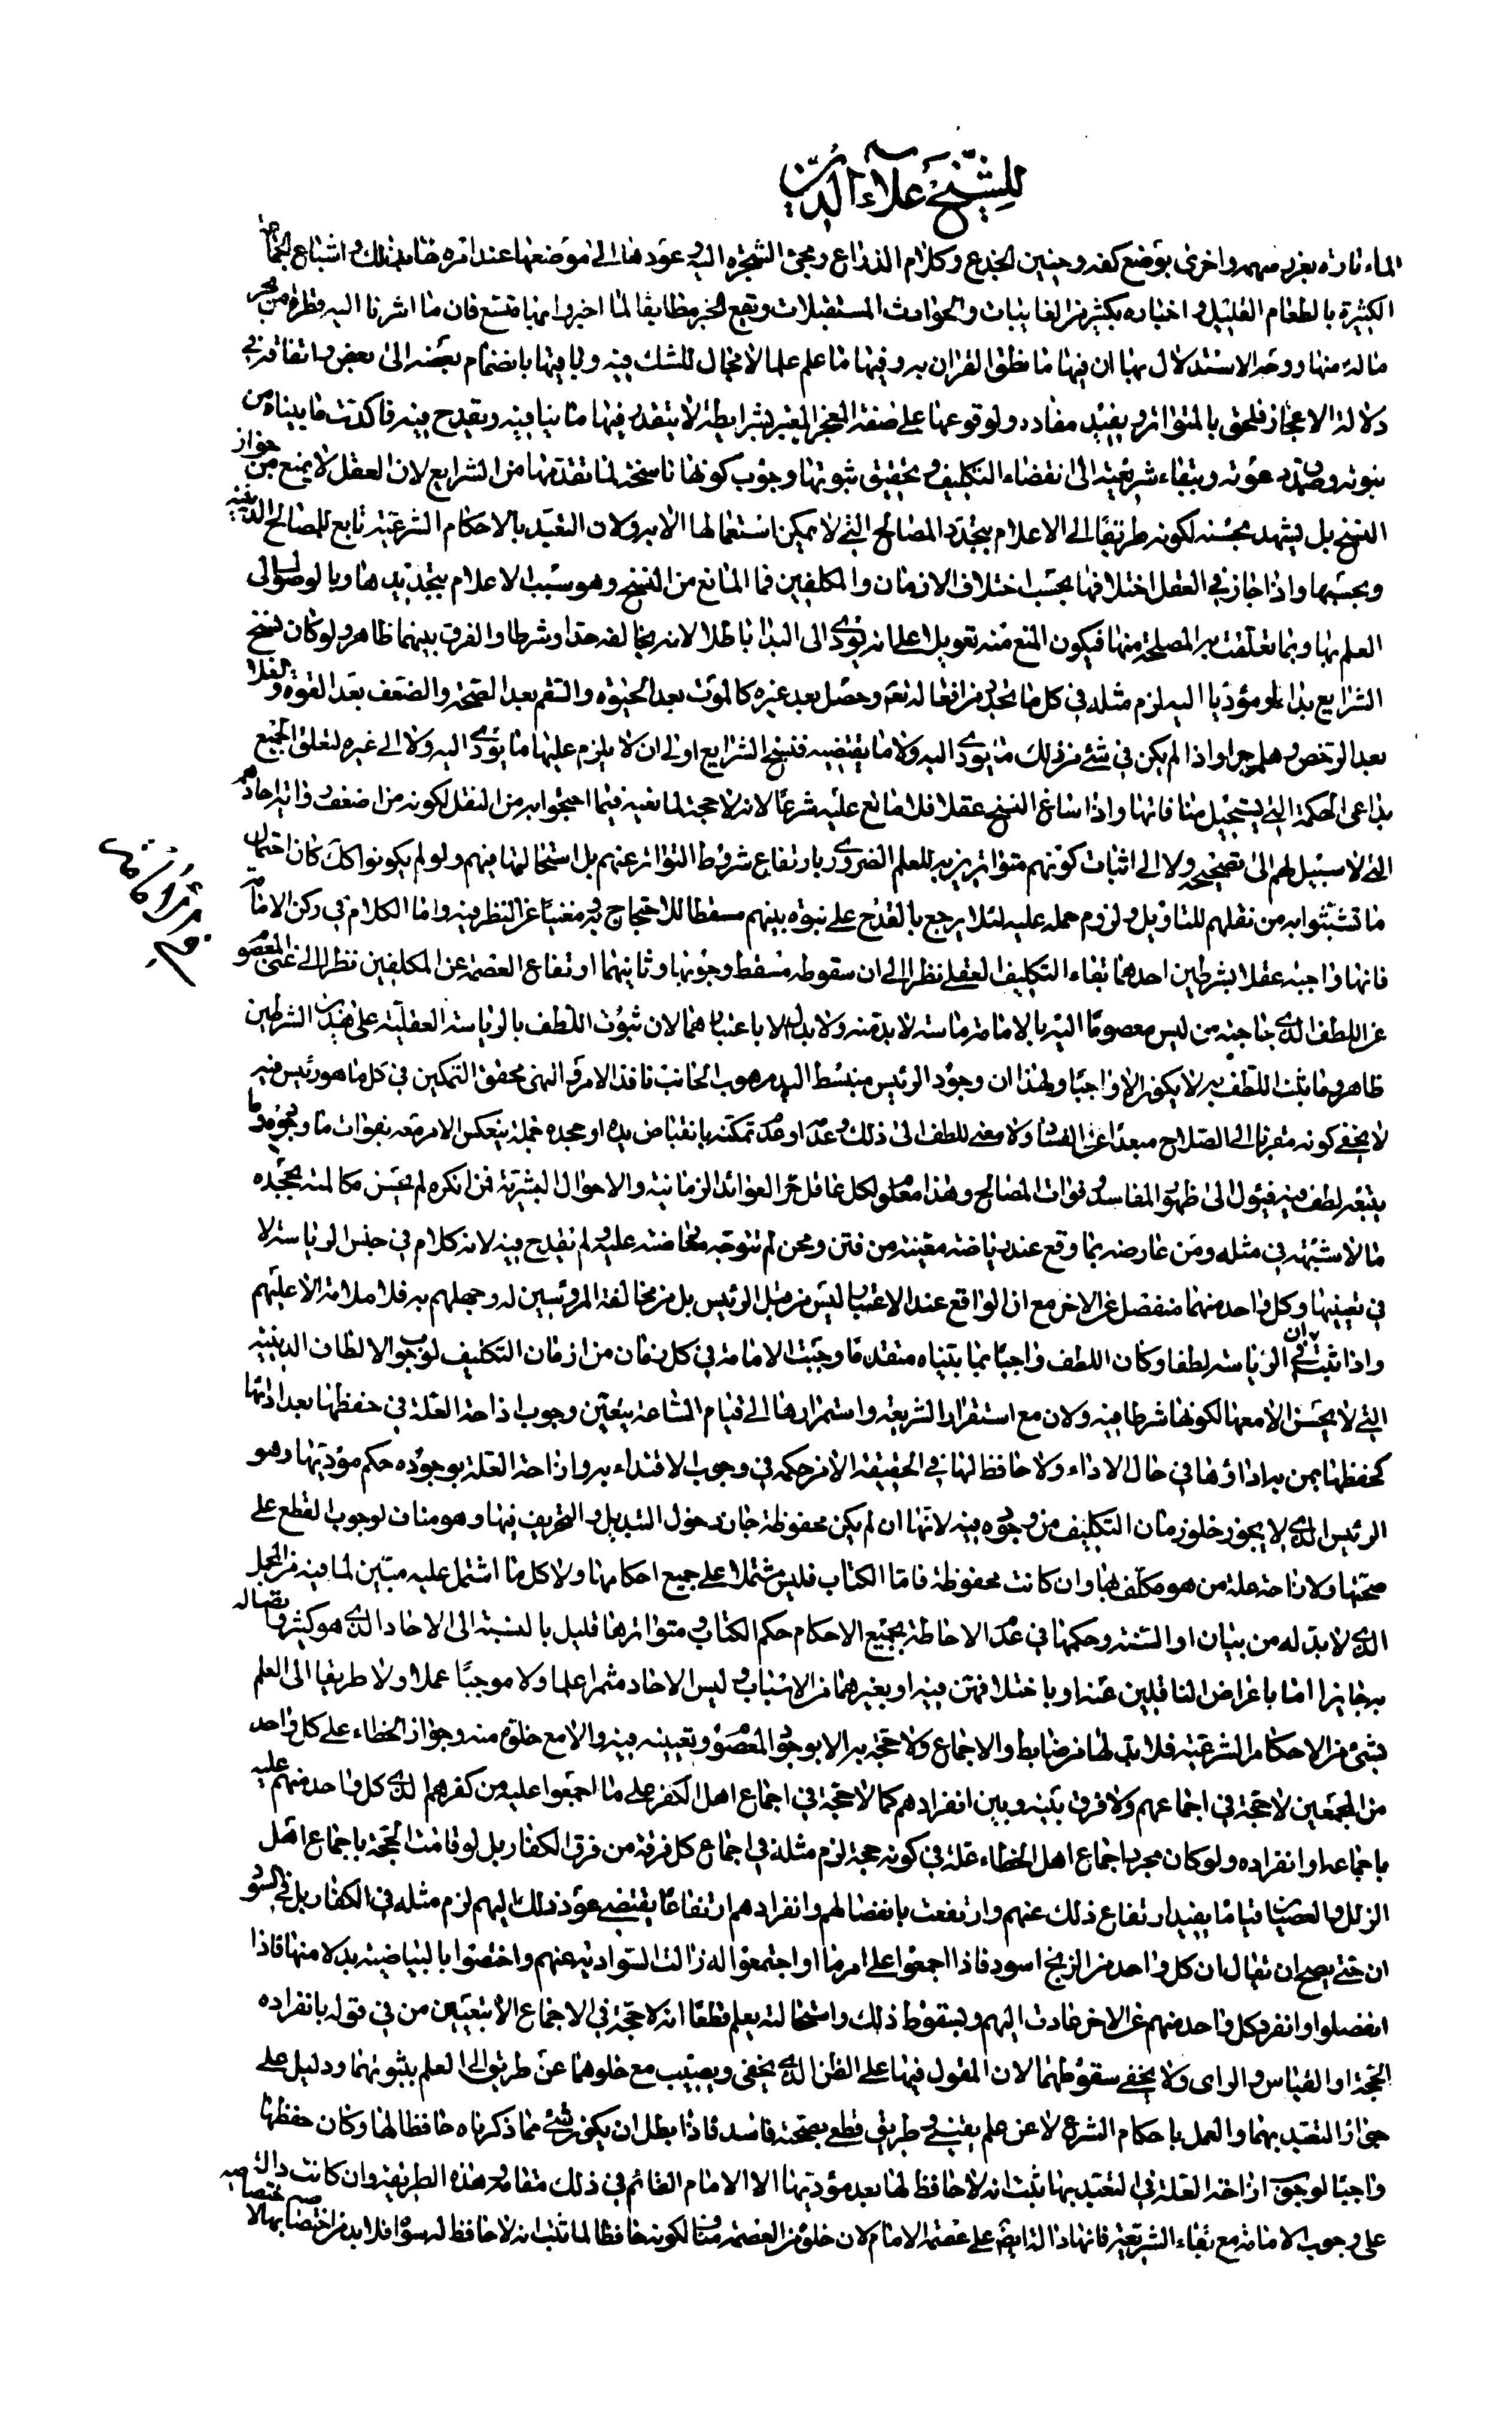 للشيخ علاء الدين
الماء تارة بغرز سهمه واخرى بوضع كفه وحنين الجذع وكلام الذراع ومجئ الشجرة اليه وعودها الى موضعها عند امره لها بذلك واشباع الجماعة
الكثيرة بالطعام القليل واخباره بكثير من الغائبات والحوادث المستقبلات وتقع الخبر مطابقا لما اخبر به فان ما اشرنا اليه قطرة من بحر
ماله منها ووجه الاستدلال بها ان فيها ما نطق القران به وفيها ما علم علما لا مجال للشك فيه وباقيها بانضمام بعضه الى بعض واتفاقه في
دلالة الاعجاز فلحق بالمتواتر ويفيد مفاده ولوقوعها على صفة المعجز المعتبر بشرايطه لا يتقدر فيها ما ينافيه ويقدح فيه فاكدت ما بيناه من
نبوته وصدق دعوته وبقاء شريعته الى انقضاء التكليف وبحقيق ثبوتها وجوب كونها ناسخة لما تقدمها من الشرايع لان العقل لا يمنع من جواز
النسخ بل يشهد بحسنه لكونه طريقا الى الاعلام بتجدد المصالح التي لا يمكن استعمالها الا به ولان التعبد بالاحكام الشرعية تابع للمصالح الدينية
وبحسبها واذا جاز في العقل اختلافها بحسب اختلاف الازمان والمكلفين فما المانع من النسخ وهو سبب الاعلام بتجديدها وبالوصول الى
العلم بها وبما تعلقت به المصلحة منها فيكون المنع منه تعويلا على انه يؤدي الى البدا باطلا لانه يخالفه حدا وشرطا والفرق بينهما ظاهر ولو كان نسخ
الشرايع بداء او مؤديا اليه لزم مثله في كل ما يتجدد من افعاله تعم وحصل بعد غيره كالموت بعد الحيوة والسقم بعد الصحة والضعف بعد القوة والغلا
بعد الرخص وهلم جرا واذا لم يكن في شئ من ذلك ما يؤدي اليه ولا ما يقتضيه فنسخ الشرايع اولى ان لا يلزم عليها ما يؤدي اليه ولا الى غيره لتعلق الجميع
بداعي الحكمة التي يستحيل منافاتها واذا ساغ النسخ عقلا فلا مانع عليه شرعا لانه لا حجة لمانعيه فيما احتجوا به من النقل لكونه من اضعف واتيه احادهم
التي لا سبيل لهم الى تصحيحه ولا الى اثبات كونهم متواترين به للعلم الضروري بارتفاع شروط التواتر عنهم بل استحالتها فيهم ولو لم يكونوا كك كان احتمال
ما تشبثوا به من نقلهم للتاويل ولزوم حمله عليه لئلا يرجع بالقدح على نبوة بينهم مسقطا للاحتجاج به ومغنيا عن النظر فيه واما الكلام في ركن الامامة
فانها واجبة عقلا بشرطين احدهما بقاء التكليف العقلي نظرا الى ان سقوطه مسقط وجوبها وثانيهما ارتفاع العصمة عن المكلفين نظرا الى غنى المعصوم
عن اللطف الذي حاجة من ليس معصوما اليه بالامامة ماسة لا بد منه ولا بد الا باعتبارهما لان ثبوت اللطف بالرياسة العقلية على هذين الشرطين
ظاهر وما ثبت اللطف به لا يكون الا واجبا ولهذا ان وجود الرئيس منبسط اليد مرهوب الجانب نافذ الامر والنهي محقق التمكين في كل ما هو رئيس فيه
لا يخفى كونه مقربا الى الصلاح مبعدا عن الفساد ولا معنى للطف الى ذلك وعدمه او عدم تمكنه بانقباض يده او جحده جملة ينعكس الامر معه بفوات ما وجوده
يتبعه لطف فيه فيؤل الى ظهور المفاسد وفوات المصالح وهذا معلوم لكل عاقل خبر العوائد الزمانية والاحوال البشرية فمن انكره لم يحسن مكالمته بجحده
ما لا شبهة في مثله ومن عارضه بما وقع عند رياسة معينة من فتن ومحن لم تتوجه معارضته عليه ولم تقدح فيه لانه كلام في جنس الرياسة لا
في تعيينها وكل واحد منهما منفصل عن الاخر مع ان الواقع عند الاعتبار ليس من قبل الرئيس بل من مخالفة المرؤسين له وجهلهم به فلا ملامة الا عليهم
واذا ثبت ان في الرياسة لطفا وكان اللطف واجبا بما بيناه متقدما وجبت الامامة في كل زمان من ازمان التكليف لوجوب الالطاف الدينية
التي لا يحسن الا معها لكونها شرطا فيه ولان مع استقرار الشريعة واستمرارها الى قيام الساعة يتعين وجوب ازاحة العلة في حفظها بعد ادائها
كحفظها بمن به اداؤها في حال الاداء ولا حافظ لها في الحقيقة الا من حكمه في وجوب الاقتداء به وازاحة العلة بوجوده حكم مؤديها وهو
الرئيس الذي لا يجوز خلو زمان التكليف من وجوده فيه لانها ان لم يكن محفوظة جاز دخول التبديل والتحريف فيها وهو مناف لوجوب القطع على
صحتها ولازاحة علة من هو مكلف بها وان كانت محفوظة فاما الكتاب فليس مشتملا على جميع احكامها ولا كل ما اشتمل عليه مبين لما فيه من المجمل
الذي لا بد له من بيان او السنة وحكمها في عدم الاحاطة بجميع الاحكام حكم الكتاب ومتواترها قليل بالنسبة الى الاحاد الذي هو كثير
به جايز اما باعراض الناقلين عنه او باختلافهم فيه او بغيرهما من الاسباب وليس الاحاد مثمرا علما ولا موجبا عملا ولا طريقا الى العلم
بشئ من الاحكام الشرعية فلا بد لها من ضابط والاجماع ولا حجة به الا بوجود المعصوم وتعيينه فيه والا مع خلوه منه وجواز الخطاء على كل واحد
من المجمعين لا حجة في اجماعهم ولا فرق بينه وبين انفرادهم كما لا حجة في اجماع اهل الكفر على ما اجمعوا عليه من كفرهم الذي كل واحد منهم عليه
باجماعه او انفراده ولو كان مجرد اجماع اهل الخطاء علة في كونه حجة لزم مثله في اجماع كل فرقة من فرق الكفار بل لو قامت الحجة باجماع اهل
الزلل والعصيان قياما يفيد ارتفاع ذلك عنهم وارتفعت بانفصالهم وانفرادهم ارتفاعا يقتضي عود ذلك اليهم لزم مثله في الكفار بل في السو
ان حتى يصح ان يقال ان كل واحد من الزنج اسود فاذا اجمعوا على امر ما او اجتمعوا له زالت السوادية عنهم واختصوا بالبياضية بدلا منها فاذا
انفصلوا وانفرد كل واحد منهم عن الاخر عادت اليهم وبسقوط ذلك واستحالته يعلم قطعا انه لا حجة في الاجماع الا بتعيين من في قوله بانفراده
الحجة او القياس والراى ولا يخفى سقوطهما لان المقول فيها على الظن الذي يخفى ويصيب مع خلوهما عن طريق الى العلم بثبوتهما ودليل على
جواز التعبد بهما والعمل باحكام الشرع لا عن علم يقيني وطريق قطعي بصحته فاسد فاذا بطل ان يكون شئ مما ذكرناه حافظا لها وكان حفظها
واجبا لوجوب ازاحة العلة في التعبد بها ثبت انه لا حافظ لها بعد مؤديها الا الامام القائم في ذلك مقامه وهذه الطريقة وان كانت دالة
على وجوب الامامة مع بقاء الشريعة فانها دالة ايضا على عصمة الامام لان خلوه من العصمة مناف لكونه حافظا لما ثبت انه لا حافظ له سواه فلا بد من اختصاصه بها لا